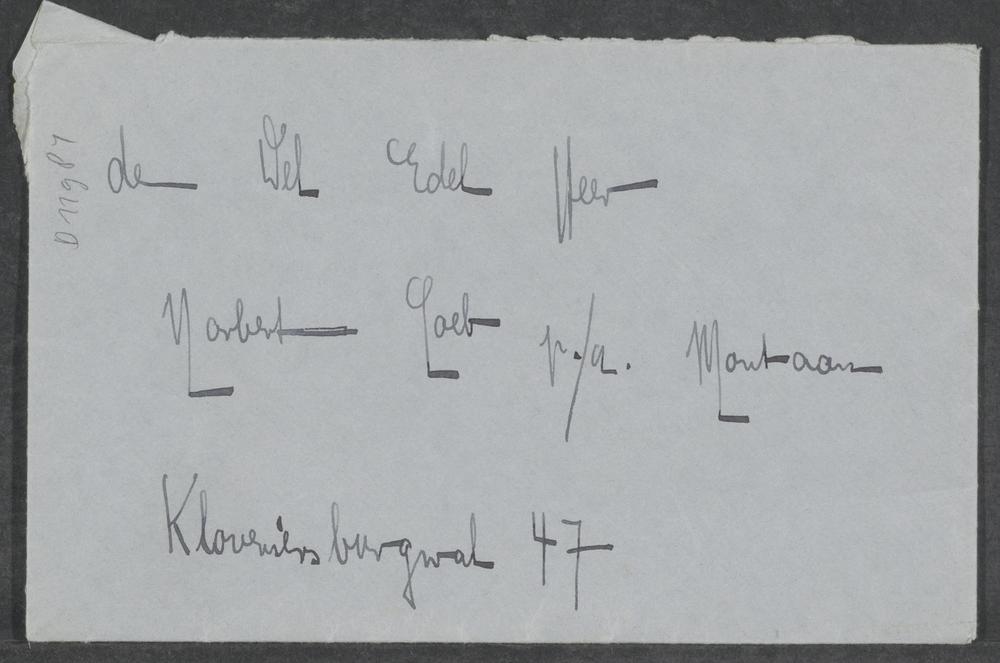 de Wel Edel Heer
Norbert Loeb p./a. Montaan
Kloveniersburgwal 47
D 11987